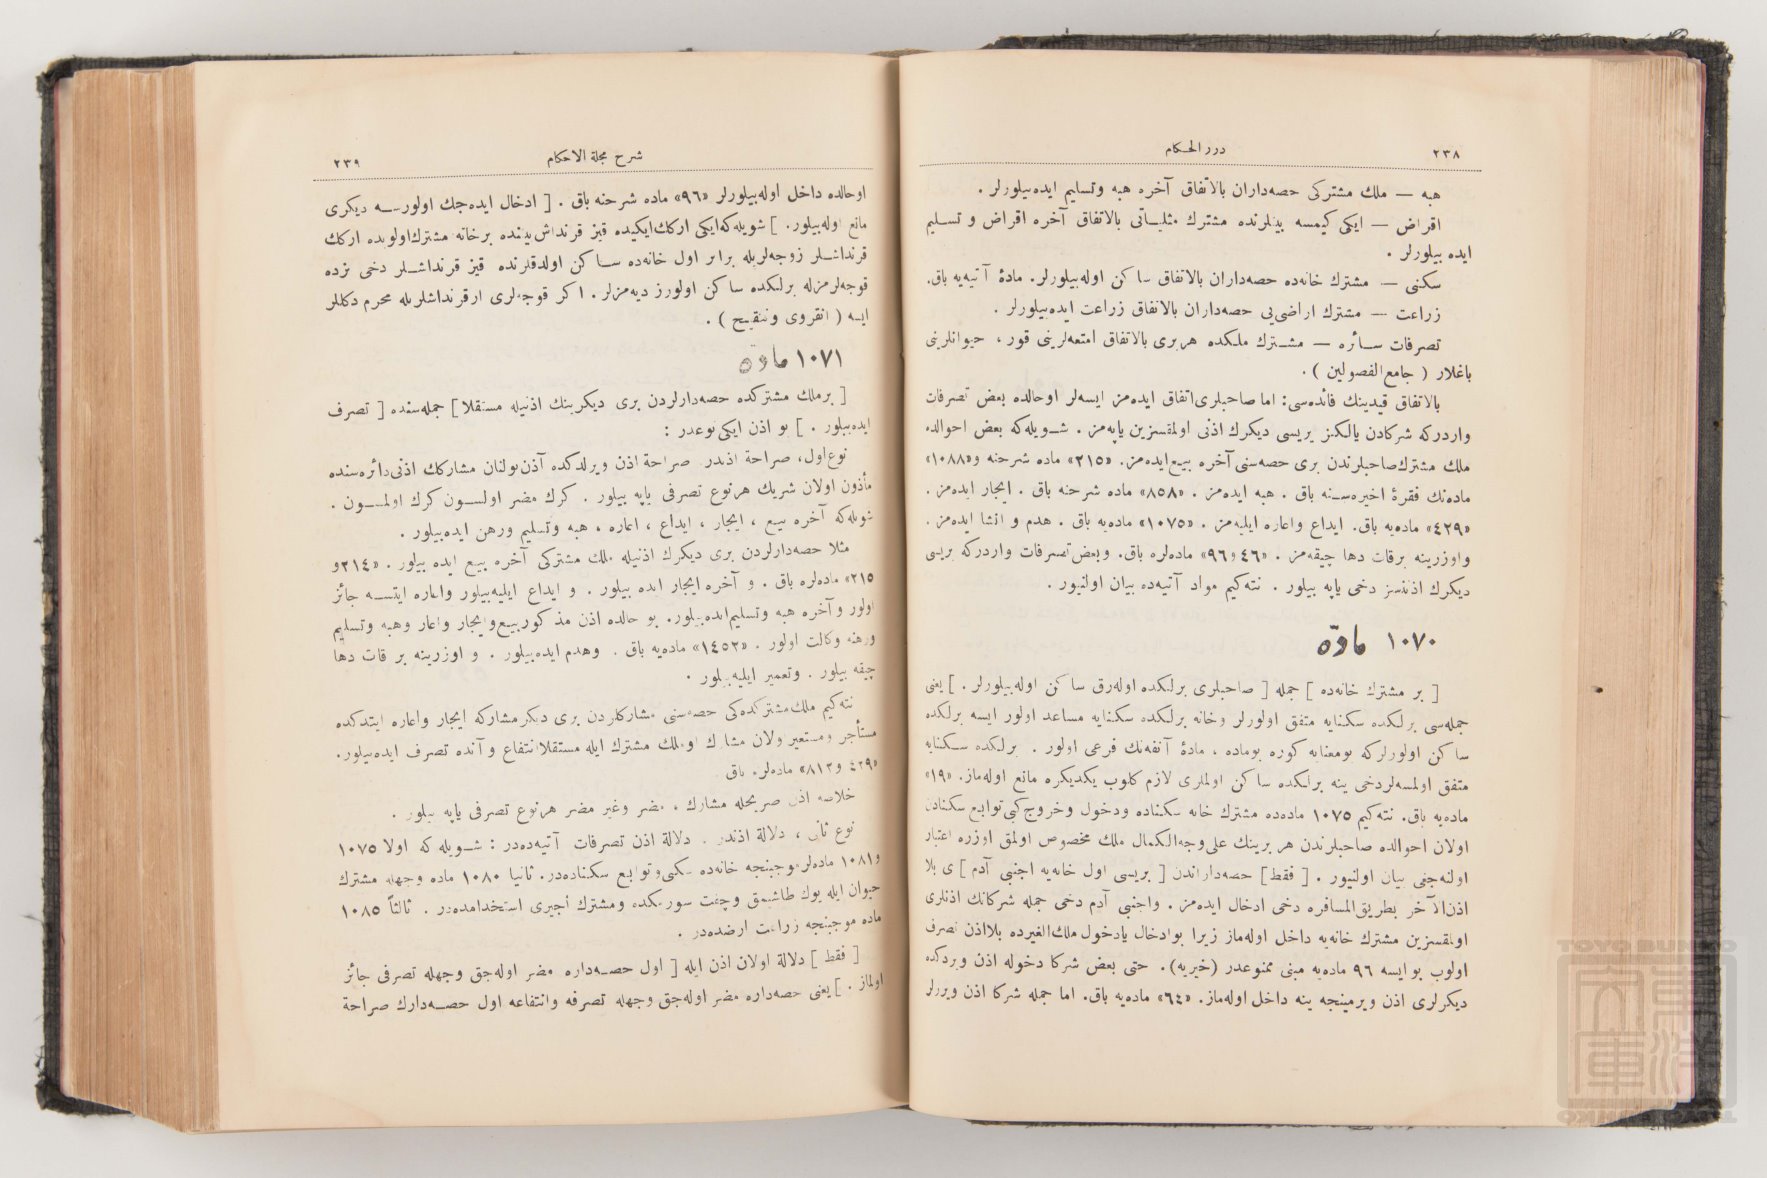 ٢٣٨
درر الحكام
هبه — ملك مشتركى حصه‌داران بالاتفاق آخره هبه وتسليم ايده‌بيلورلر .
اقراض — ايكى كيمسه بينلرنده مشترك مثلياتى بالاتفاق آخره اقراض و تسليم
ايده بيلورلر .
سكنى — مشترك خانه‌ده حصه‌داران بالاتفاق ساكن اوله‌بيلورلر. مادۀ آتيه‌يه باق.
زراعت — مشترك اراضى‌يى حصه‌داران بالاتفاق زراعت ايده‌بيلورلر .
تصرفات سائره — مشترك ملكده هربرى بالاتفاق امتعه‌لرينى قور ، حيوانلرينى
باغلار ( جامع‌الفصولين ) .
بالاتفاق قيدينك فائده‌سى: اما صاحبلرى اتفاق ايده‌مز ايسه‌لر اوحالده بعض تصرفات
واردركه شركادن يالكز بريسى ديكرك اذنى اولمقسزين ياپه‌مز . شويله‌كه بعض احوالده
ملك مشترك صاحبلرندن برى حصه‌سنى آخره بيع ايده‌مز. «٢١٥» ماده شرحنه و«١٠٨٨»
ماده‌نك فقرۀ اخيره‌سنه باق . هبه ايده‌مز . «٨٥٨» ماده شرحنه باق . ايجار ايده‌مز .
«٤٢٩» ماده‌يه باق. ايداع واعاره ايليه‌مز . «١٠٧٥» ماده‌يه باق . هدم و انشا ايده‌مز .
واوزرينه برقات دها چيقه‌مز . «٤٦ و٩٦» ماده‌لره باق. وبعض تصرفات واردركه بريسى
ديكرك اذنسز دخى ياپه بيلور . نته‌كيم مواد آتيه‌ده بيان اولنيور .
١٠٧٠ مادّه
[ بر مشترك خانه‌ده ] جمله [ صاحبلرى برلكده اوله‌رق ساكن اوله‌بيلورلر . ] يعنى
جمله‌سى برلكده سكنايه متفق اولورلر وخانه برلكده سكنايه مساعد اولور ايسه برلكده
ساكن اولورلركه بومعنايه كوره بوماده ، مادۀ آنفه‌نك فرعى اولور . برلكده سكنايه
متفق اولمسه‌لردخى ينه برلكده ساكن اولملرى لازم كلوب يكديكره مانع اوله‌ماز. «١٩»
ماده‌يه باق. نته‌كيم ١٠٧٥ ماده‌ده مشترك خانه سكناده ودخول وخروج كبى توابع سكنادن
اولان احوالده صاحبلرندن هر برينك على‌وجه‌الكمال ملك مخصوص اولمق اوزره اعتبار
اولنه‌جغى بيان اولنيور . [ فقط] حصه‌داراندن [ بريسى اول خانه‌يه اجنبى آدم ] ى بلا
اذن‌الآخر بطريق‌المسافره دخى ادخال ايده‌مز . واجنبى آدم دخى جمله شركانك اذنلرى
اولمقسزين مشترك خانه‌يه داخل اوله‌ماز زيرا بوادخال يادخول ملك‌الغيرده بلااذن تصرف
اولوب بو ايسه ٩٦ ماده‌يه مبنى ممنوعدر (خيريه). حتى بعض شركا دخوله اذن ويردكده
ديكرلرى اذن ويرمينجه ينه داخل اوله‌ماز. «٦٤» ماده‌يه باق. اما جمله شركا اذن ويررلر
شرح مجلة الاحكام
٢٣٩
اوحالده داخل اوله‌بيلورلر «٩٦» ماده شرحنه باق . [ ادخال ايده‌جك اولورسه ديكرى
مانع اوله‌بيلور. ] شويله‌كه ايكى اركك ايكيده قيز قرنداش بيننده برخانه مشترك اولوبده اركك
قرنداشلر زوجه‌لريله برابر اول خانه‌ده ساكن اولدقلرنده قيز قرنداشلر دخى بزده
قوجه‌لرمزله برلكده ساكن اولورز ديه‌مزلر. اكر قوجه‌لرى ارقرنداشلريله محرم دكللر
ايسه ( انقروى وتنقيح ) .
١٠٧١ مادّه
[ برملك مشتركده حصه‌دارلردن برى ديكرينك اذنيله مستقلا ] جمله‌سنده [ تصرف
ايده‌بيلور . ] بو اذن ايكى نوعدر :
نوع اول، صراحة اذندر. صراحة اذن ويرلدكده آذن بولنان مشاركك اذنى دائره‌سنده
مأذون اولان شريك هرنوع تصرفى ياپه بيلور . كرك مضر اولسون كرك اولمسون .
شويله‌كه آخره بيع ، ايجار ، ايداع ، اعاره ، هبه وتسليم ورهن ايده‌بيلور .
مثلا حصه‌دارلردن برى ديكرك اذنيله ملك مشتركى آخره بيع ايده بيلور . «٢١٤ و
٢١٥» ماده‌لره باق . و آخره ايجار ايده بيلور . و ايداع ايليه‌بيلور واعاره ايتسه جائز
اولور و آخره هبه وتسليم ايده‌بيلور. بو حالده اذن مذكور بيع وايجار واعار وهبه وتسليم
ورهنه وكالت اولور . «١٤٥٢» ماده‌يه باق . وهدم ايده‌بيلور . و اوزرينه بر قات دها
چيقه بيلور . وتعمير ايليه‌بيلور .
نته‌كيم ملك مشتركده‌كى حصه‌سنى مشاركلردن برى ديكر مشاركه ايجار واعاره ايتدكده
مستأجر ومستعير اولان مشارك او ملك مشترك ايله مستقلا انتفاع و آنده تصرف ايده‌بيلور.
«٤٢٩ و٨١٢» ماده‌لره باق
خلاصه اذن صريحله مشارك ، مضر وغير مضر هرنوع تصرفى ياپه بيلور .
نوع ثانى ، دلالة اذندر . دلالة اذن تصرفات آتيه‌ده‌در : شويله كه اولا ١٠٧٥
و١٠٨١ ماده‌لر موجبنجه خانه‌ده سكنى وتوابع سكناده‌در. ثانيا ١٠٨٠ ماده وجهله مشترك
حيوان ايله يوك طاشيمق وچفت سورمكده ومشترك اجيرى استخدامده‌در . ثالثاً ١٠٨٥
ماده موجبنجه زراعت ارضده‌در .
[ فقط ] دلالة اولان اذن ايله [ اول حصه‌داره مضر اوله‌جق وجهله تصرفى جائز
اولماز . ] يعنى حصه‌داره مضر اوله‌جق وجهله تصرفه وانتفاعه اول حصه‌دارك صراحة
TOYO BUNKO